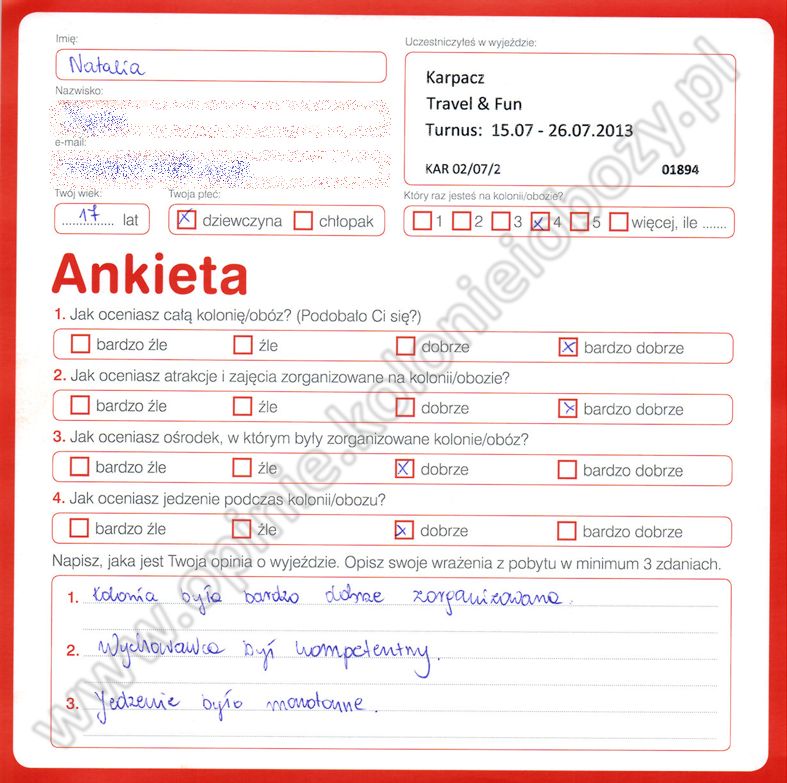 Imię:
Natalia
Uczestniczyłeś w wyjeździe:
Karpacz
Travel & Fun
Turnus: 15.07 - 26.07.2013
KAR 02/07/2 01894
Nazwisko:
e-mail:
Twój wiek:
17 lat
Twoja płeć:
dziewczyna chłopak
Który raz jesteś na kolonii/obozie?
1 2 3 4 5 więcej, ile .......
Ankieta
1. Jak oceniasz całą kolonię/obóz? (Podobało Ci się?)
bardzo źle źle dobrze bardzo dobrze
2. Jak oceniasz atrakcje i zajęcia zorganizowane na kolonii/obozie?
bardzo źle źle dobrze bardzo dobrze
3. Jak oceniasz ośrodek, w którym były zorganizowane kolonie/obóz?
bardzo źle źle dobrze bardzo dobrze
4. Jak oceniasz jedzenie podczas kolonii/obozu?
bardzo źle źle dobrze bardzo dobrze
Napisz, jaka jest Twoja opinia o wyjeździe. Opisz swoje wrażenia z pobytu w minimum 3 zdaniach.
1. Kolonia była bardzo dobrze zorganizowana.
2. Wychowawca był kompetentny.
3. Jedzenie było monotonne.
www.opinie.kolonieiobozy.pl